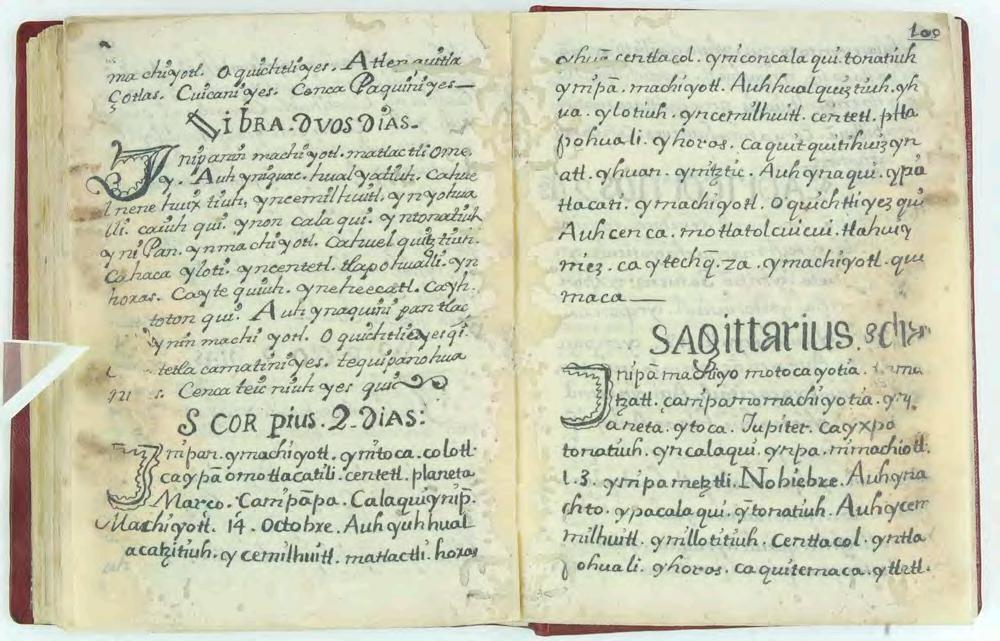 ma chiyotl. Oquichtliyes. Atlen quitla
Çotlas. Cuicaniyes. Cenca Paquiniyes—
LIBRA. DVOS DIAS.
Jnipanin machiyotl. matlactli Ome.
Auh yniquac. hual yatiuh. Cahue
l nene huix tiuh, yncemilhuitl, ynyohua
lli. caiuh qui. ynon cala qui. yntonatiuh
yni Pan. ynmachiyotl. Cahuel quiz tiuh.
Ca haca yloti. yncentetl. tlapohualli. yn
horas. Cayte quiuh. yneheecatl. Cayh.
toton qui. Auh ynaquini pan tlac
ynin machi yotl. Oquichtlieyes qi.
tetla camatiniyes. tequipanohua
ni s. Cenca teic niuh yes qui
SCORpius. 2. DIAS:
Jnipan. ymachiyotl. ymtoca. colotl.
caypā omotlacatili. centetl. planeta
Março. Campāpa. Calaquiynip.
Machiyotl. 14. Octobre. Auh yuh hual
acatzitiuh. cy cemilhuitl. matlactli. horas
100
yhuā centlacol. ynicon cala qui. tonatiuh
ynipā. machiyotl. Auh hualquiz tiuh. yh
ua. ylotiuh. yncemilhuitl. centetl. ptla
pohuali. yhoros. ca quit quitihuiz yn
atl. yhuan. ynitztic. Auh ynaqui. ypā
tlacati. ymachiyotl. Oquichtliyez qui
Auh cenca. motlatolcuicui. tlahuey
niez. ca ytechq. za. ymachiyotl. qui
maca—
SAgittarius.
Jnipā machiyo motocayotia.
tzatl. campamomachiyotia. yny
aneta. ytoca. Jupiter. cayxpā
tonatiuh. yncalaqui. ynpa. nimachiotl.
13. ynipametztli. Nobiebre. Auh yna
chto. ypacalaqui. ȳtonatiuh. Auh ycem
milhuitl. ynillotitiuh. Centlacol. yntla
pohuali. yhoros. caquitemaca. ytletl.